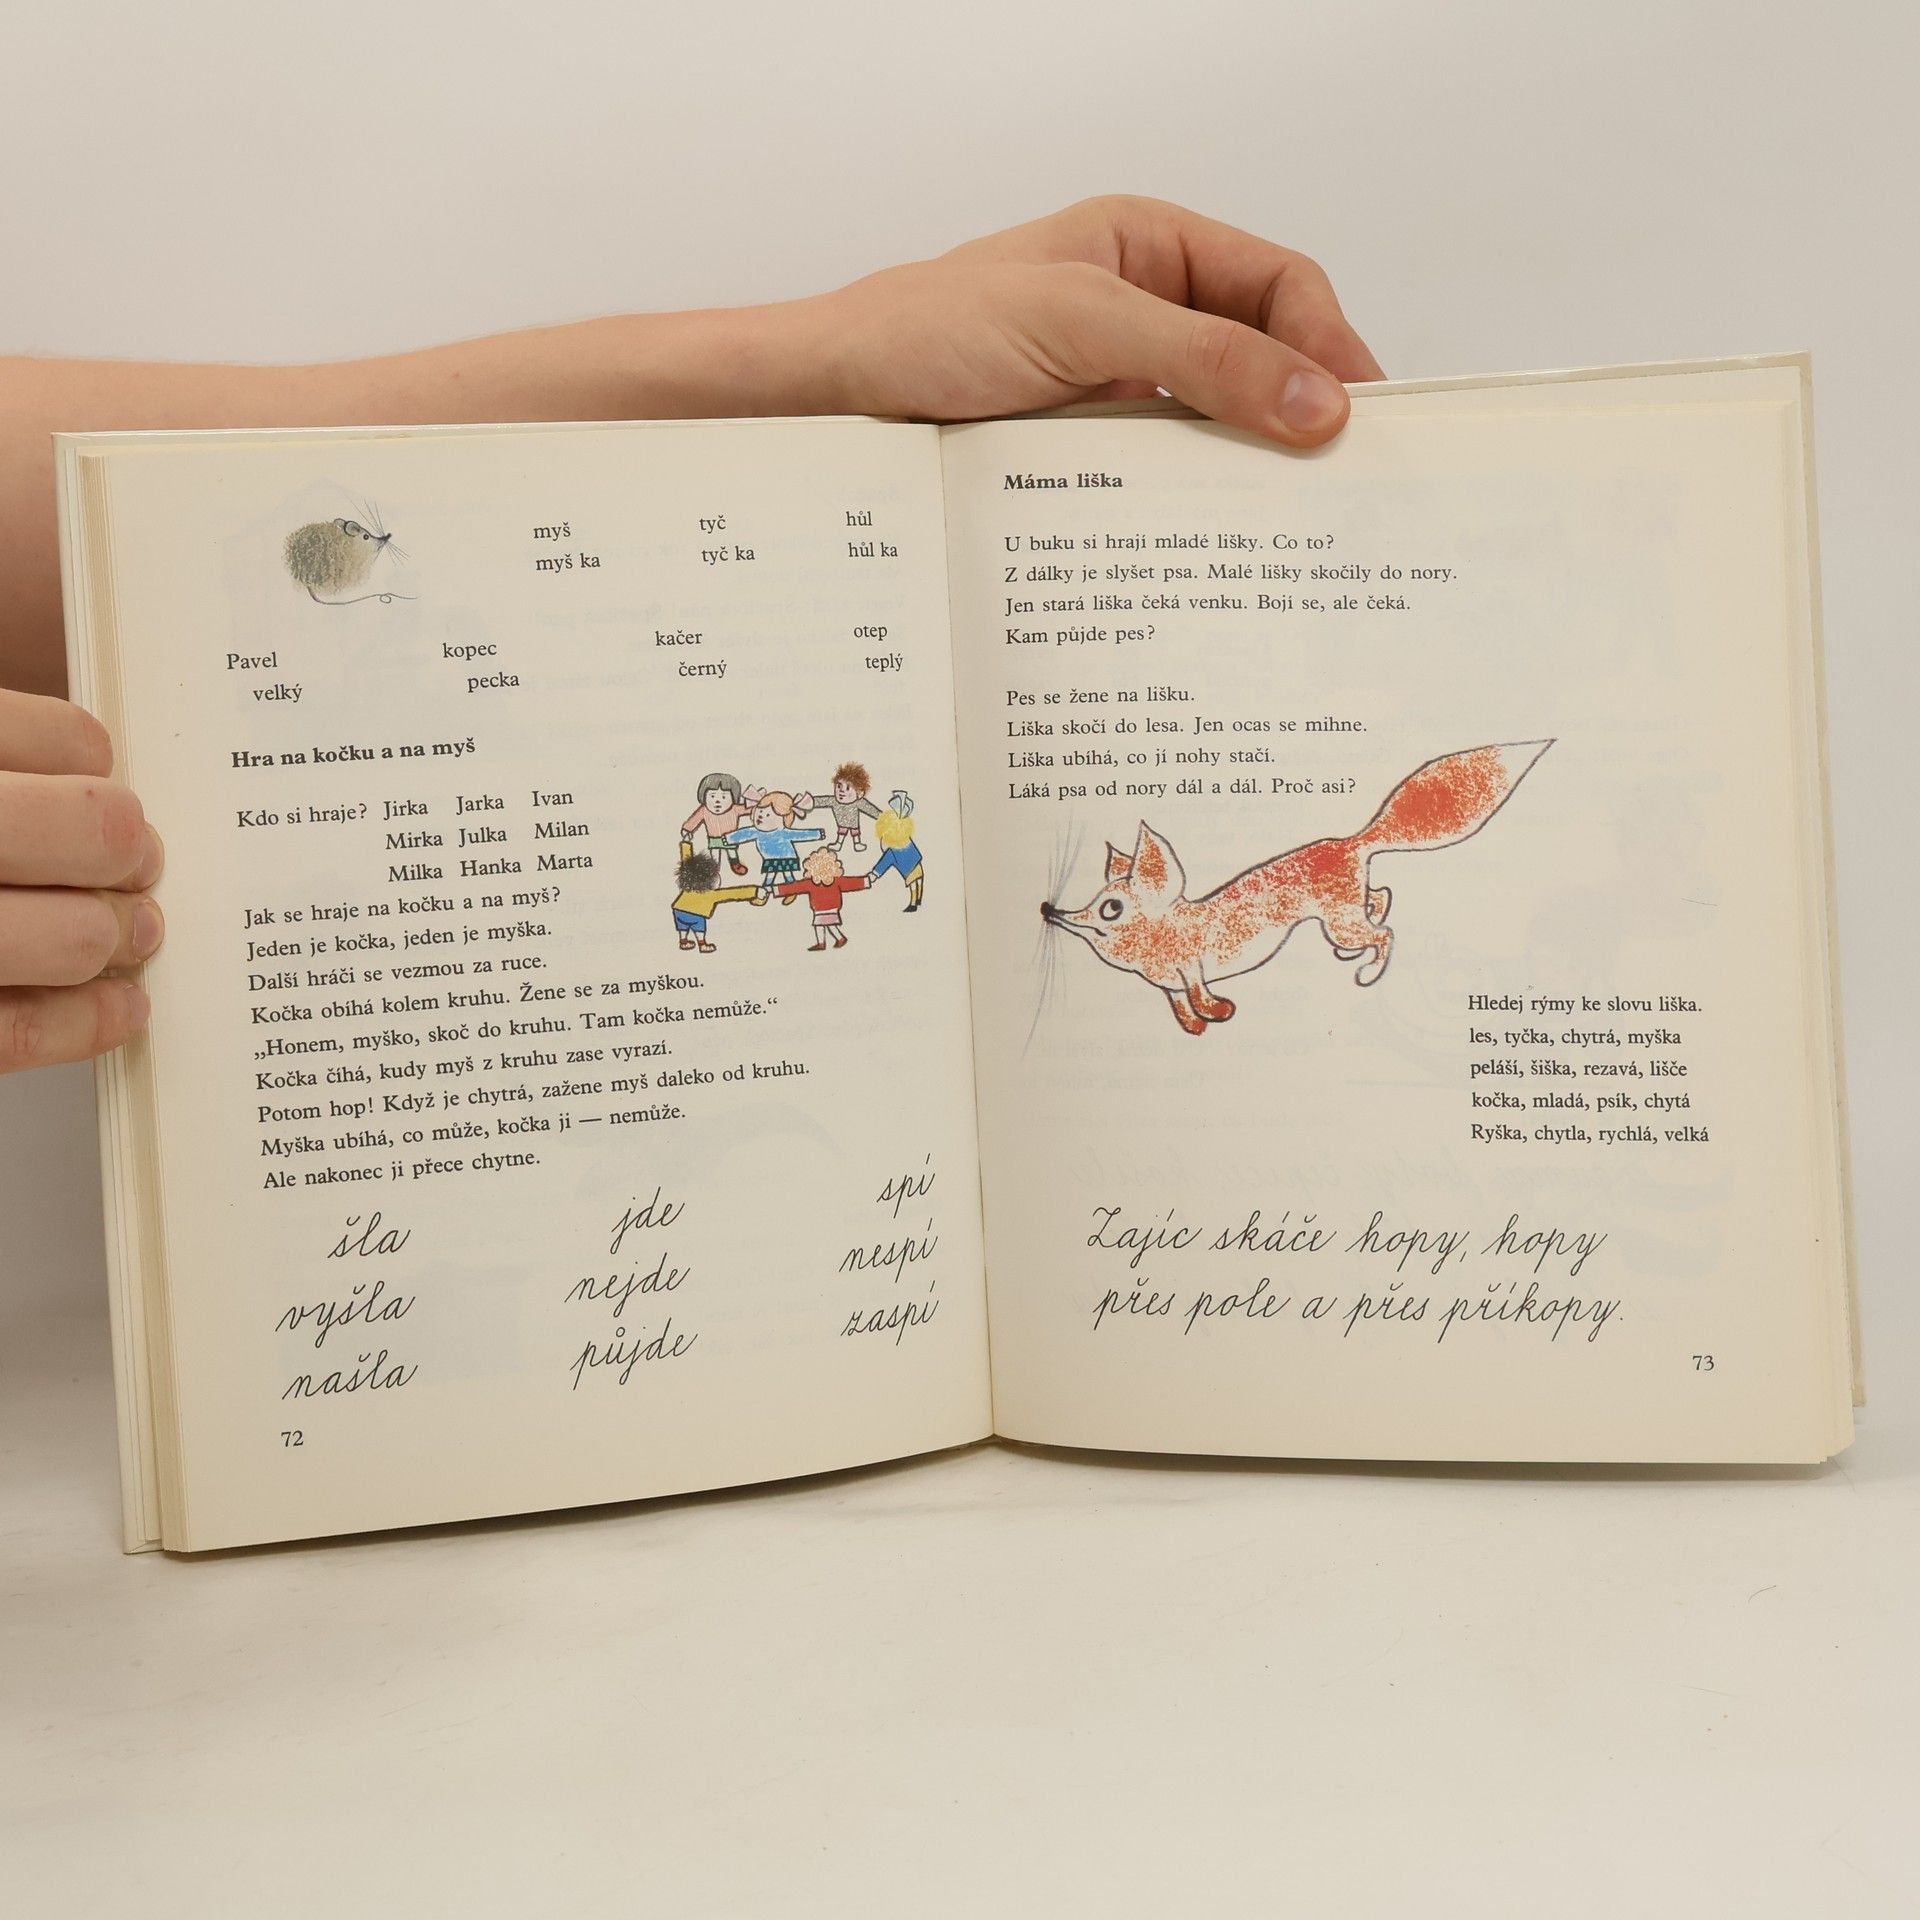 myš tyč hůl
myš ka tyč ka hůl ka
Pavel kopec kačer otep
velký pecka černý teplý
Hra na kočku a na myš
Kdo si hraje? Jirka Jarka Ivan
Mirka Julka Milan
Milka Hanka Marta
Jak se hraje na kočku a na myš?
Jeden je kočka, jeden je myška.
Další hráči se vezmou za ruce.
Kočka obíhá kolem kruhu. Žene se za myškou.
„Honem, myško, skoč do kruhu. Tam kočka nemůže.“
Kočka číhá, kudy myš z kruhu zase vyrazí.
Potom hop! Když je chytrá, zažene myš daleko od kruhu.
Myška ubíhá, co může, kočka ji — nemůže.
Ale nakonec ji přece chytne.
šla jde spí
vyšla nejde nespí
našla půjde zaspí
72
Máma liška
U buku si hrají mladé lišky. Co to?
Z dálky je slyšet psa. Malé lišky skočily do nory.
Jen stará liška čeká venku. Bojí se, ale čeká.
Kam půjde pes?
Pes se žene na lišku.
Liška skočí do lesa. Jen ocas se mihne.
Liška ubíhá, co jí nohy stačí.
Láká psa od nory dál a dál. Proč asi?
Hledej rýmy ke slovu liška.
les, tyčka, chytrá, myška
peláší, šiška, rezavá, lišče
kočka, mladá, psík, chytá
Ryška, chytla, rychlá, velká
Zajíc skáče hopy, hopy
přes pole a přes příkopy.
73